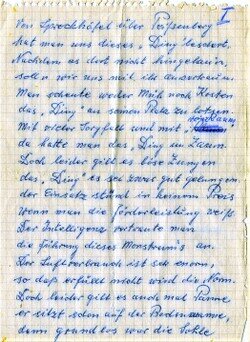 I
Von Sprockhöfel über Poßsenberg
hat man uns dieses, "Ding" beschert.
Nachdem es dort nicht hingehauen,
soll'n wir uns mal
Man scheute weder Müh noch Kosten
das, "Ding" an seinen Platz zu lotsen.
Mit vieler Sorgfalt und mit,
da hatte man das, "Ding" im
Doch leider gibt es böse Zungen
das, "Ding" es sei zwar gut gelungen
der Einsatz stünd in keinem Preis
wenn man die Förderleistung weiß.
Der Intelligenz vertraute man
die Führung dieses Monstrums an.
Der Luftverbrauch ist sehr enorm,
so daß erfüllt nicht wird die, Norm.
Doch leider gibt es auch mal Panne
er sitzt schon auf der
denn grundlos war die Sohle